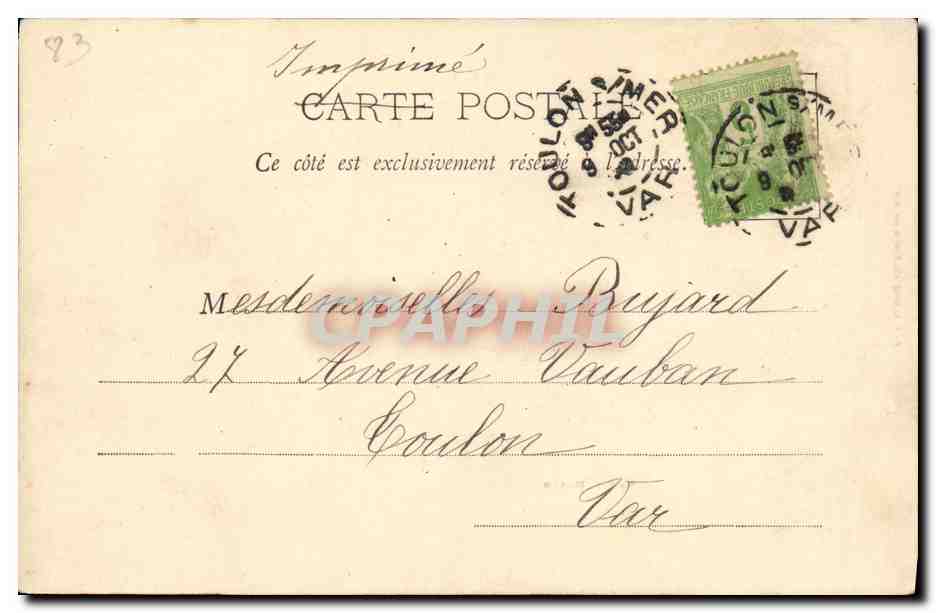 83
Imprimé
CARTE POSTALE
Ce côté est exclusivement réservé à l'adresse.
TOULON S/MER
8H 55M
9 OCT
VAR
TOULON S/MER
VAR
Mesdemoiselles Bujard
CPAPHIL
27 Avenue Vauban
Toulon
Var